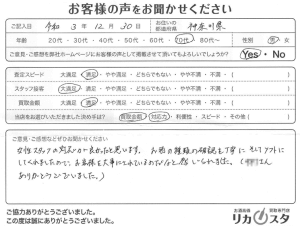 お客様の声をお聞かせください
ご記入日 令和 3 年 12 月 30 日 お住いの都道府県 神奈川県
年齢 20代 ・ 30代 ・ 40代 ・ 50代 ・ 60代 ・ 70代 ・ 80代〜 性別 男 ・ 女
ご意見・ご感想を弊社ホームページにお客様の声として掲載させて頂いてもよろしいでしょうか? Yes ・ No
査定スピード 大満足 ・ 満足 ・ やや満足 ・ どちらでもない ・ やや不満 ・ 不満 ( )
スタッフ接客 大満足 ・ 満足 ・ やや満足 ・ どちらでもない ・ やや不満 ・ 不満 ( )
買取金額 大満足 ・ 満足 ・ やや満足 ・ どちらでもない ・ やや不満 ・ 不満 ( )
当店をお選びいただきました決め手は? 買取金額 ・ 対応力 ・ 利便性 ・ スピード ・ その他 ( )
ご意見・ご感想などぜひお聞かせください
女性スタッフの対応が良かったと思います。お酒の種類の確認も丁寧に そしてソフトに
してくれましたので、お客様を大事にされているのだなと感じられました。( さん
ありがとうございました。)
ご協力ありがとうございました。
この度は誠にありがとうございました。
お酒高価買取専門店
リカスタ